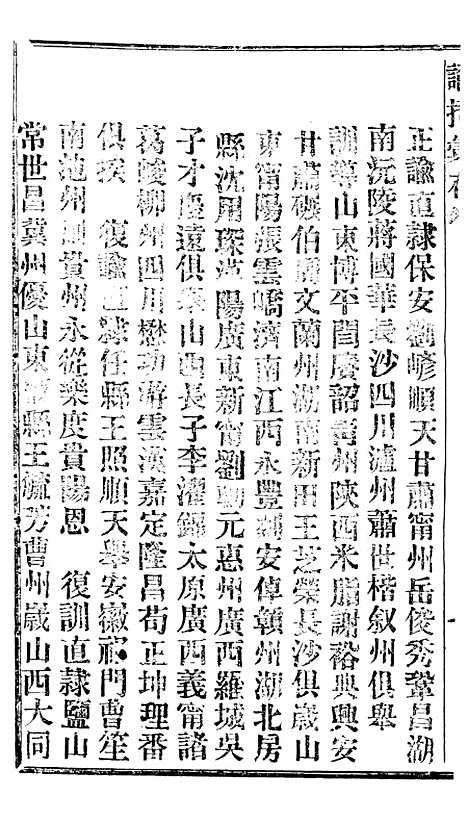 正諭直隸保安劉嵃順天甘肅甯州岳俊秀鞏昌湖
南沅陵蔣國華長沙四川瀘州蕭世楷叙州俱舉
訓導山東博平閆賡韶青州陝西米脂謝裕興興安
甘肅碾伯 文蘭州湖南新田王芝榮長沙俱歲山
東甯陽張雲嶠濟南江西永豐劉安倬贛州湖北房
縣沈用琛 陽廣東新甯劉 元惠州廣西羅城吳
子才慶遠俱 山西長子李濯錦太原廣西義甯諸
葛皧柳州四川懋功 雲漢嘉定隆昌荀正坤理番
俱 復諭直隸任縣王照順天舉安徽祁門曹笙
南池州 貴州永從樂度貴陽恩 復訓直隸鹽山
常世昌冀州優山東 縣王毓芳曹州歲山西大同